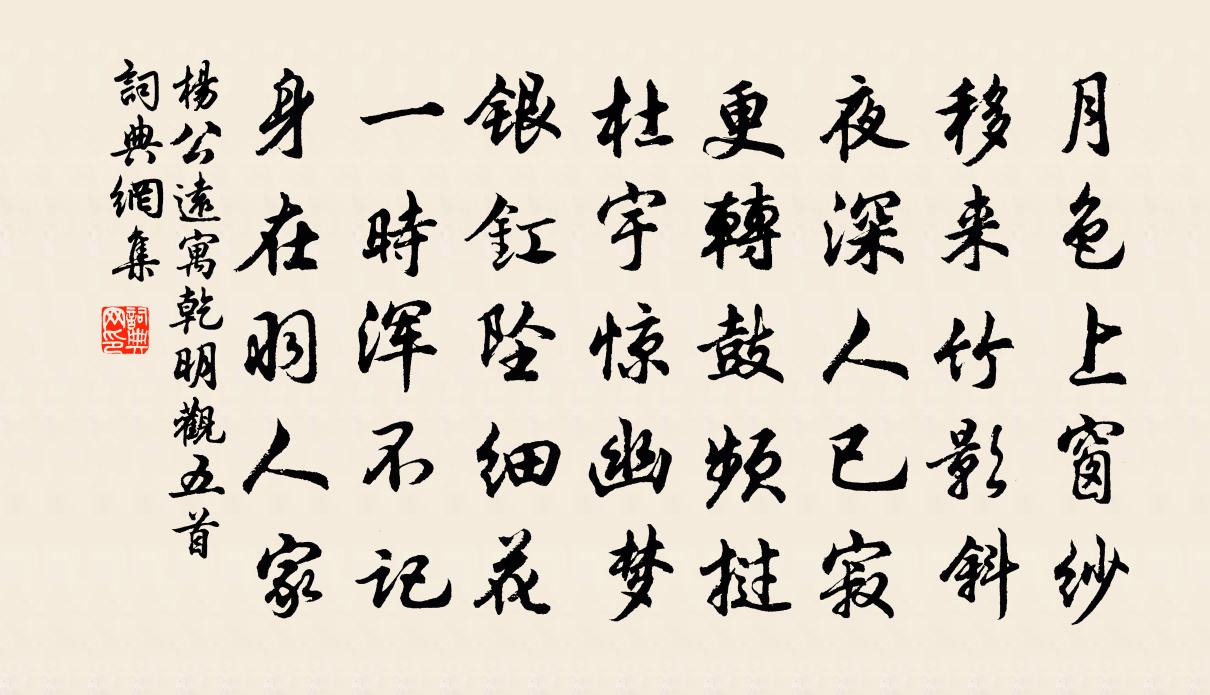 月色上窗紗
移来竹影斜
夜深人已寂
更轉鼓頻撾
杜宇惊幽梦
銀釭坠细花
一時浑不记
身在羽人家
楊公遠寓乾明觀五首
詞典網集
詞典网印